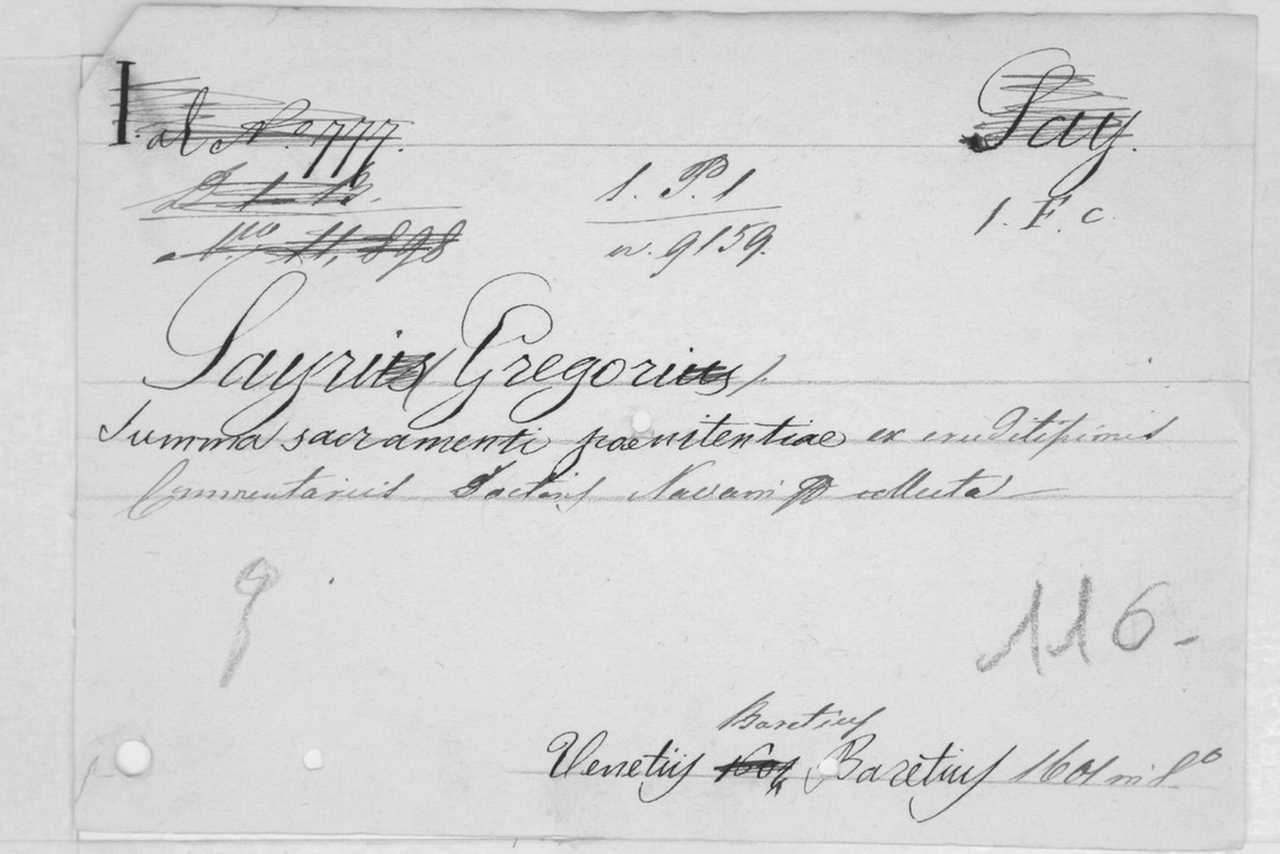 I. al No 777. Say.
D 1 13. 1. P. 1 1. F. c.
No 11,898 n. 9159.
Sayrius Gregorius).
Summa sacramenti poenitentiae ex eruditissimis
Commentariis Doctoris Navarri collecta
9
116-
Baretius
Venetiis 1601 Baretius 1601 in 8o